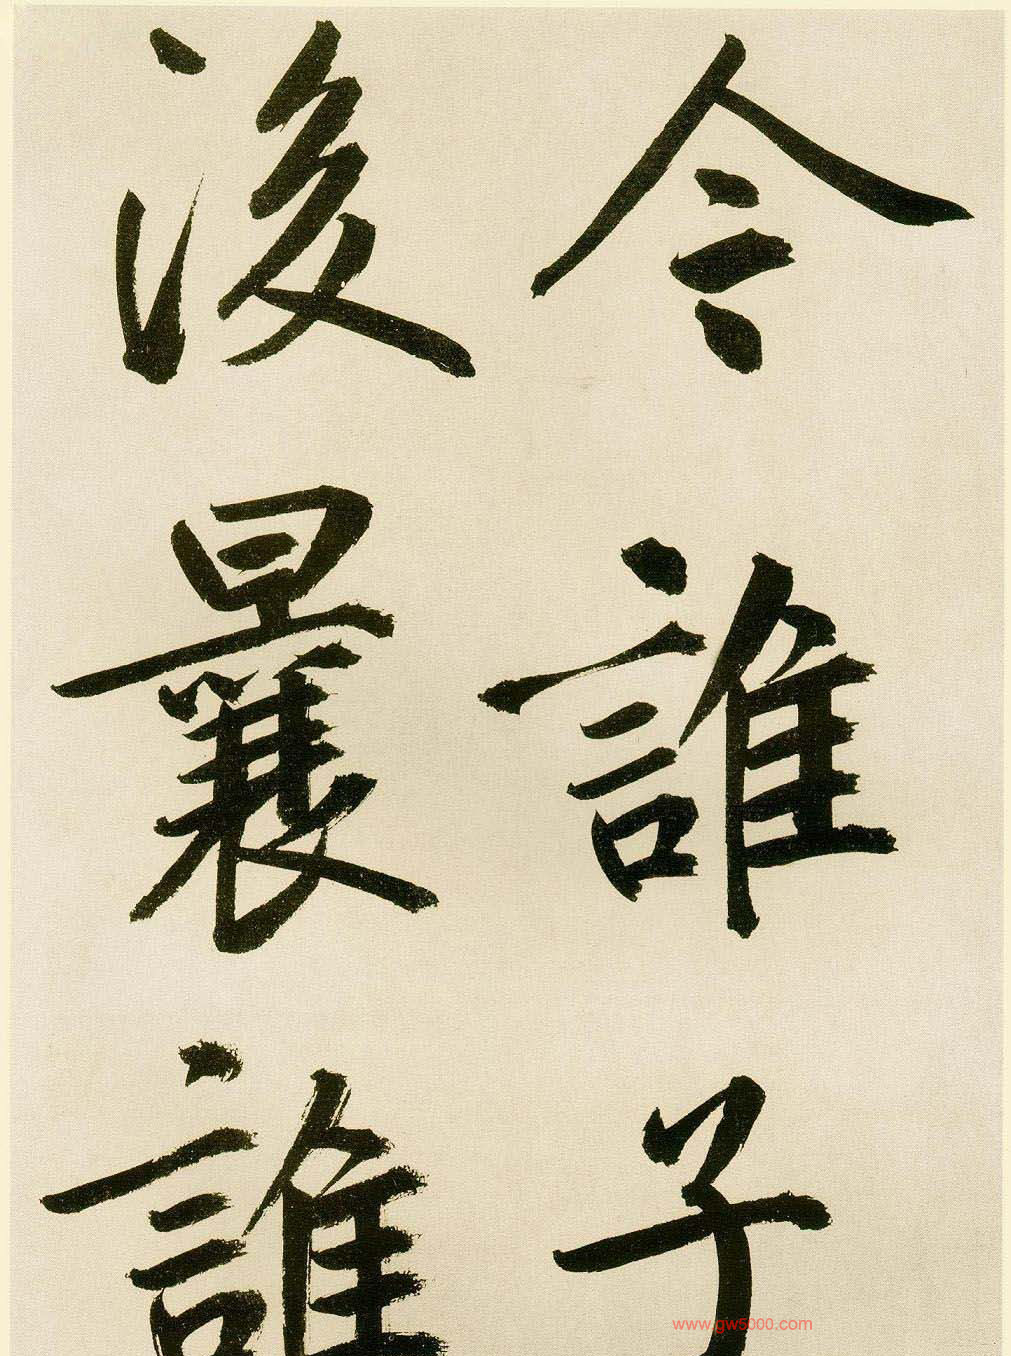 今誰子
後曩誰
www.gw5000.com